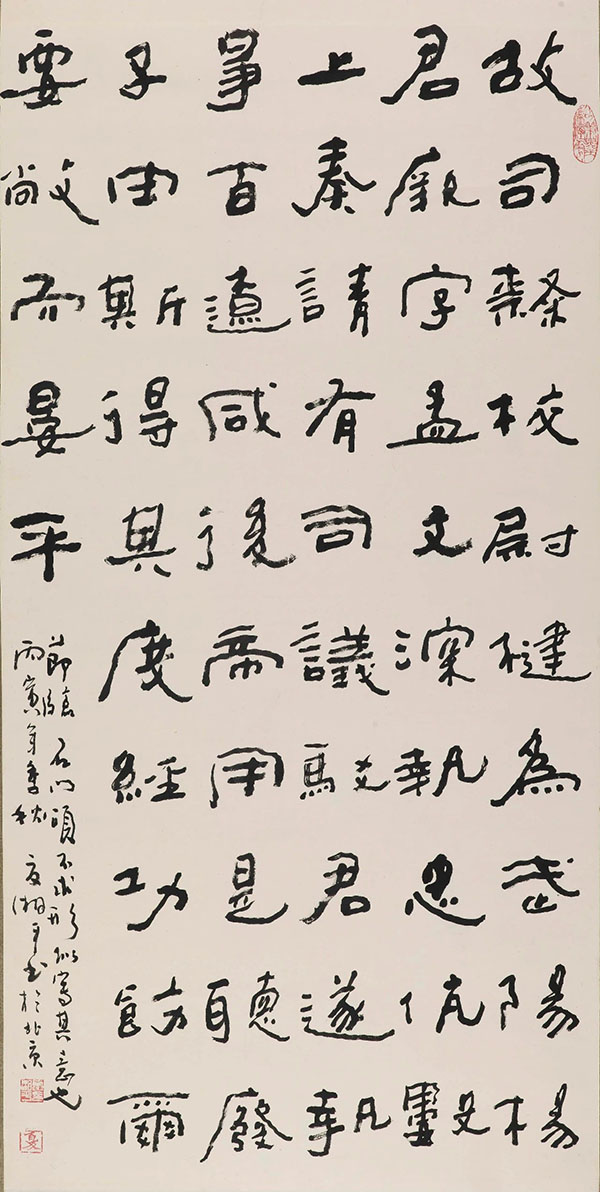 故司隸校尉楗為武陽楊
君厥字孟文深執忠伉數
上奏請有司議駮君遂執
爭百遼咸從帝用是聽廢
子由斯得其度經功飭爾
要敞而晏平
節臨石门頌不求形似寫其意也
丙寅年季秋夏湘平书於北京
夏